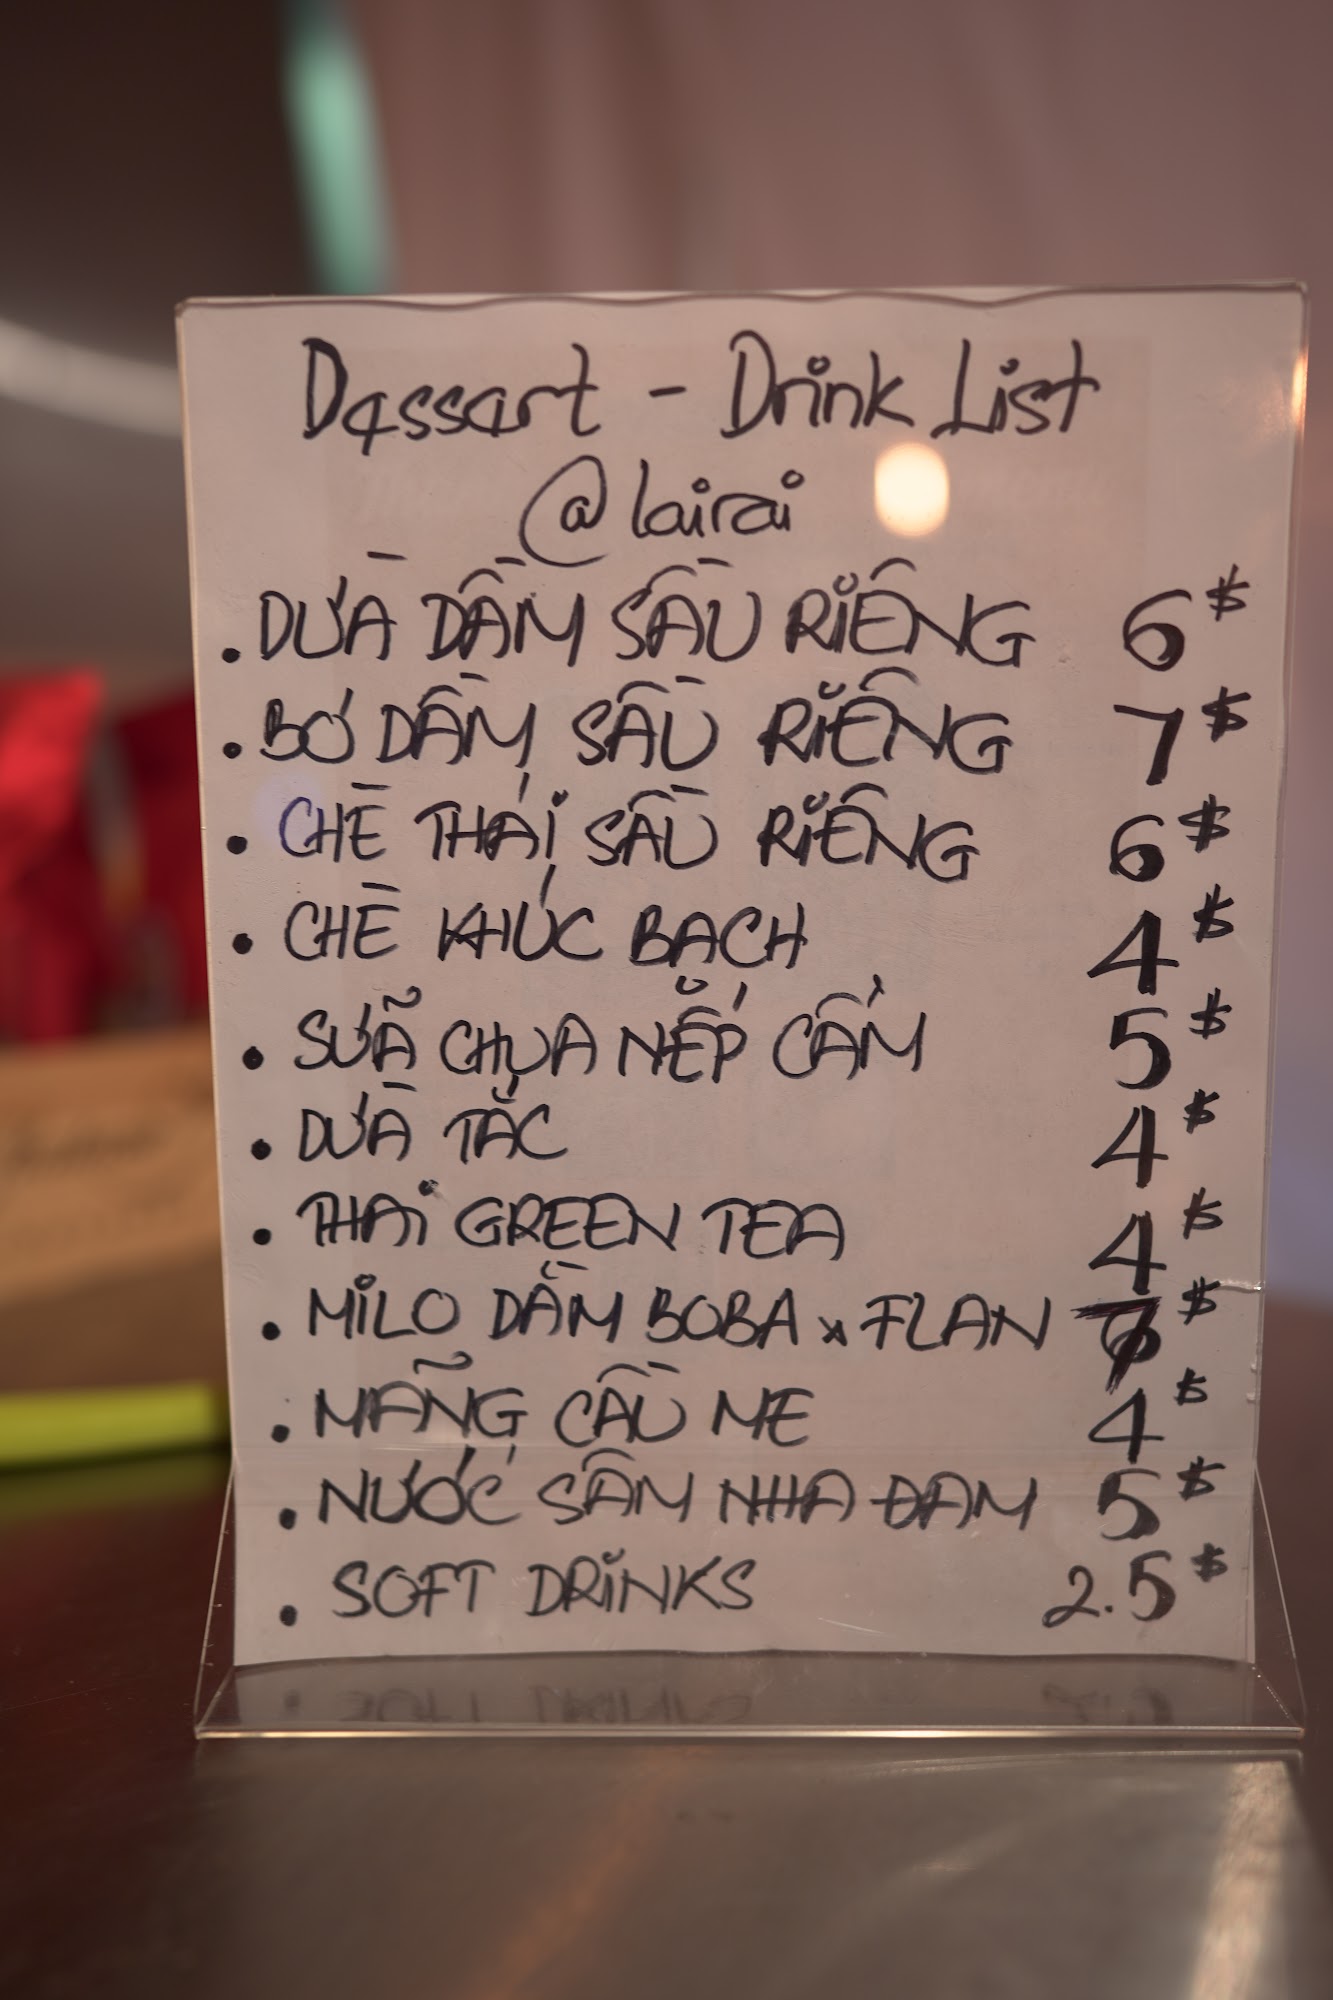 Dessert - Drink List
@lairai
. DỪA DẦM SẦU RIÊNG 6$
. BƠ DẦM SẦU RIÊNG 7$
. CHÈ THÁI SẦU RIÊNG 6$
. CHÈ KHÚC BẠCH 4$
. SỮA CHUA NẾP CẨM 5$
. DỪA TẮC 4$
. THAI GREEN TEA 4$
. MILO DẦM BOBA x FLAN 7$
. MÃNG CẦU ME 4$
. NƯỚC SÂM NHA ĐAM 5$
. SOFT DRINKS 2.5$